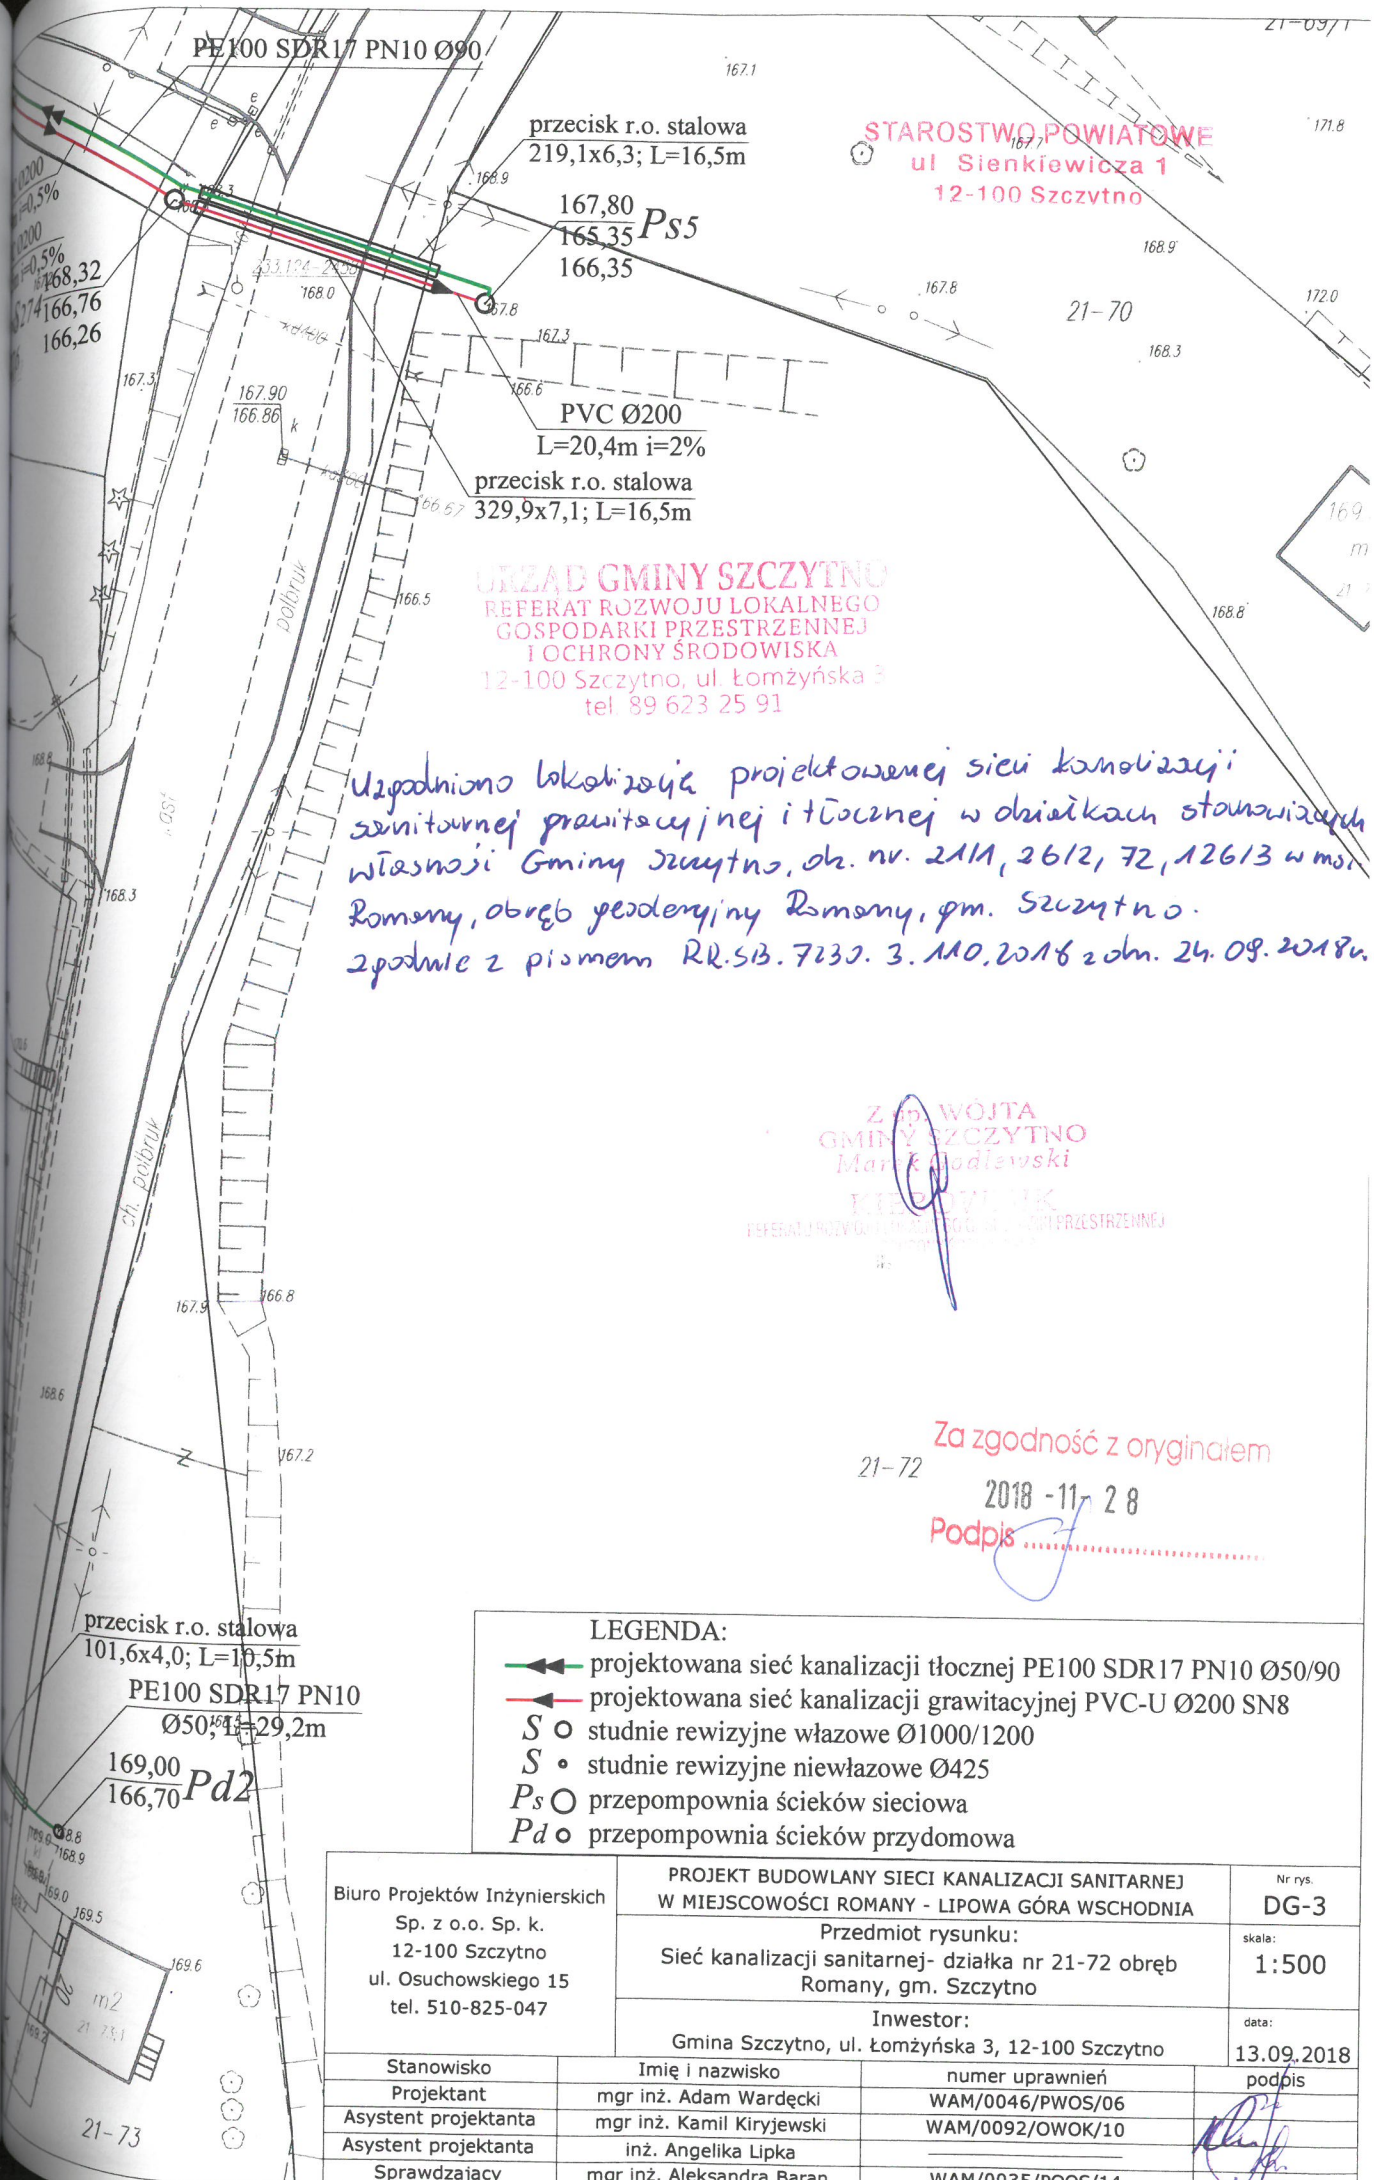 21-69/1
PE100 SDR17 PN10 Ø90
167.1
171.8
przecisk r.o. stalowa
219,1x6,3; L=16,5m
STAROSTWO POWIATOWE
167.7
ul Sienkiewicza 1
12-100 Szczytno
e
e
e
168.9
167,80
165,35
166,35
Ps5
168.9
167.8
172.0
21-70
168.3
Ø200
i=0,5%
Ø200
i=0,5%
168,32
166,76
166,26
S274
168.0
167.8
k0400
167.3
167.3
166.6
167.90
166.86
k
PVC Ø200
L=20,4m i=2%
przecisk r.o. stalowa
329,9x7,1; L=16,5m
166.67
169
m
168.8
polbruk
166.5
URZĄD GMINY SZCZYTNO
REFERAT ROZWOJU LOKALNEGO
GOSPODARKI PRZESTRZENNEJ
I OCHRONY ŚRODOWISKA
12-100 Szczytno, ul. Łomżyńska 3
tel. 89 623 25 91
168.8
Uzgodniono lokalizację projektowanej sieci kanalizacji
sanitarnej grawitacyjnej i tłocznej w działkach stanowiących
własność Gminy Szczytno, dz. nr. 21/1, 26/2, 72, 126/3 w msc.
Romany, obręb geodezyjny Romany, gm. Szczytno.
zgodnie z pismem RR.SB.7230.3.110.2018 z dn. 24.09.2018r.
168.3
asf
Z up. WÓJTA
GMINY SZCZYTNO
Marek Godlewski
KIEROWNIK
PRZESTRZENNEJ
ch. polbruk
167.9
166.8
168.6
167.2
Za zgodność z oryginałem
21-72
2018 -11- 28
Podpis
przecisk r.o. stalowa
101,6x4,0; L=10,5m
PE100 SDR17 PN10
Ø50; L=29,2m
169,00
166,70
Pd2
168.8
168.9
169.0
169.0
169.5
169.6
m2
21-73
LEGENDA:
projektowana sieć kanalizacji tłocznej PE100 SDR17 PN10 Ø50/90
projektowana sieć kanalizacji grawitacyjnej PVC-U Ø200 SN8
S studnie rewizyjne włazowe Ø1000/1200
S studnie rewizyjne niewłazowe Ø425
Ps przepompownia ścieków sieciowa
Pd przepompownia ścieków przydomowa
Biuro Projektów Inżynierskich
Sp. z o.o. Sp. k.
12-100 Szczytno
ul. Osuchowskiego 15
tel. 510-825-047
PROJEKT BUDOWLANY SIECI KANALIZACJI SANITARNEJ
W MIEJSCOWOŚCI ROMANY - LIPOWA GÓRA WSCHODNIA
Nr rys.
DG-3
Przedmiot rysunku:
Sieć kanalizacji sanitarnej- działka nr 21-72 obręb
Romany, gm. Szczytno
skala:
1:500
Inwestor:
Gmina Szczytno, ul. Łomżyńska 3, 12-100 Szczytno
data:
13.09.2018
Stanowisko Imię i nazwisko numer uprawnień podpis
Projektant mgr inż. Adam Wardęcki WAM/0046/PWOS/06
Asystent projektanta mgr inż. Kamil Kiryjewski WAM/0092/OWOK/10
Asystent projektanta inż. Angelika Lipka
Sprawdzający mgr inż. Aleksandra Baran WAM/0035/POOS/14